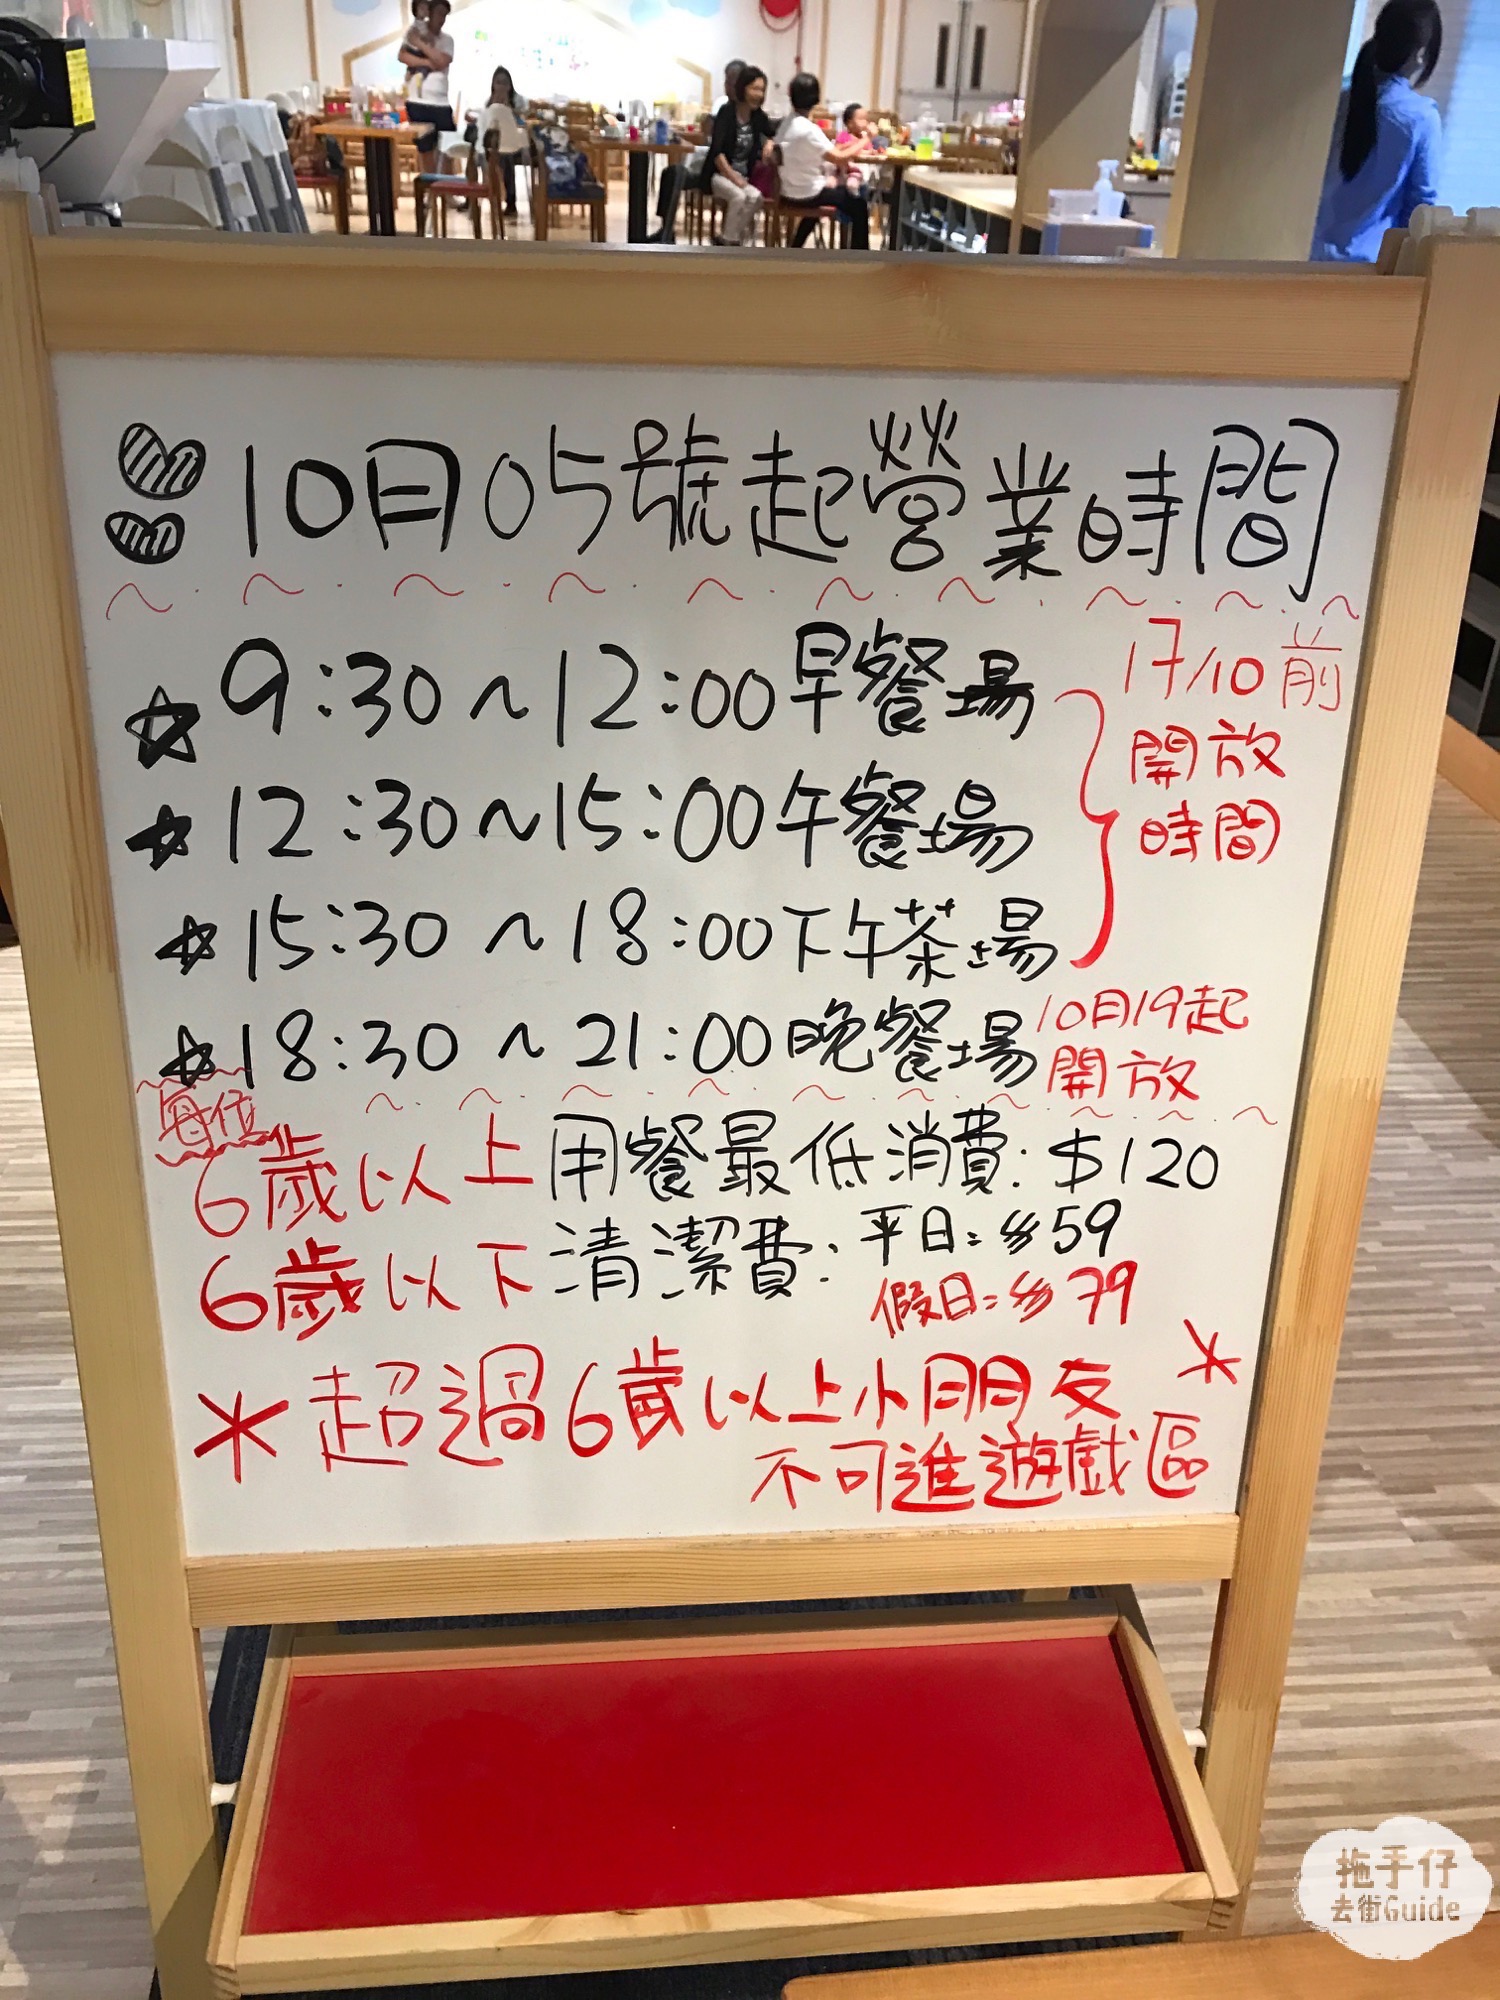 10月05號起營業時間
9:30~12:00早餐場
12:30~15:00午餐場
15:30~18:00下午茶場
17/10前
開放
時間
18:30~21:00晚餐場
10月19起
開放
每位
6歲以上用餐最低消費:$120
6歲以下清潔費:平日:$59
假日:$79
*超過6歲以上小朋友*
不可進遊戲區
拖手仔
去街Guide